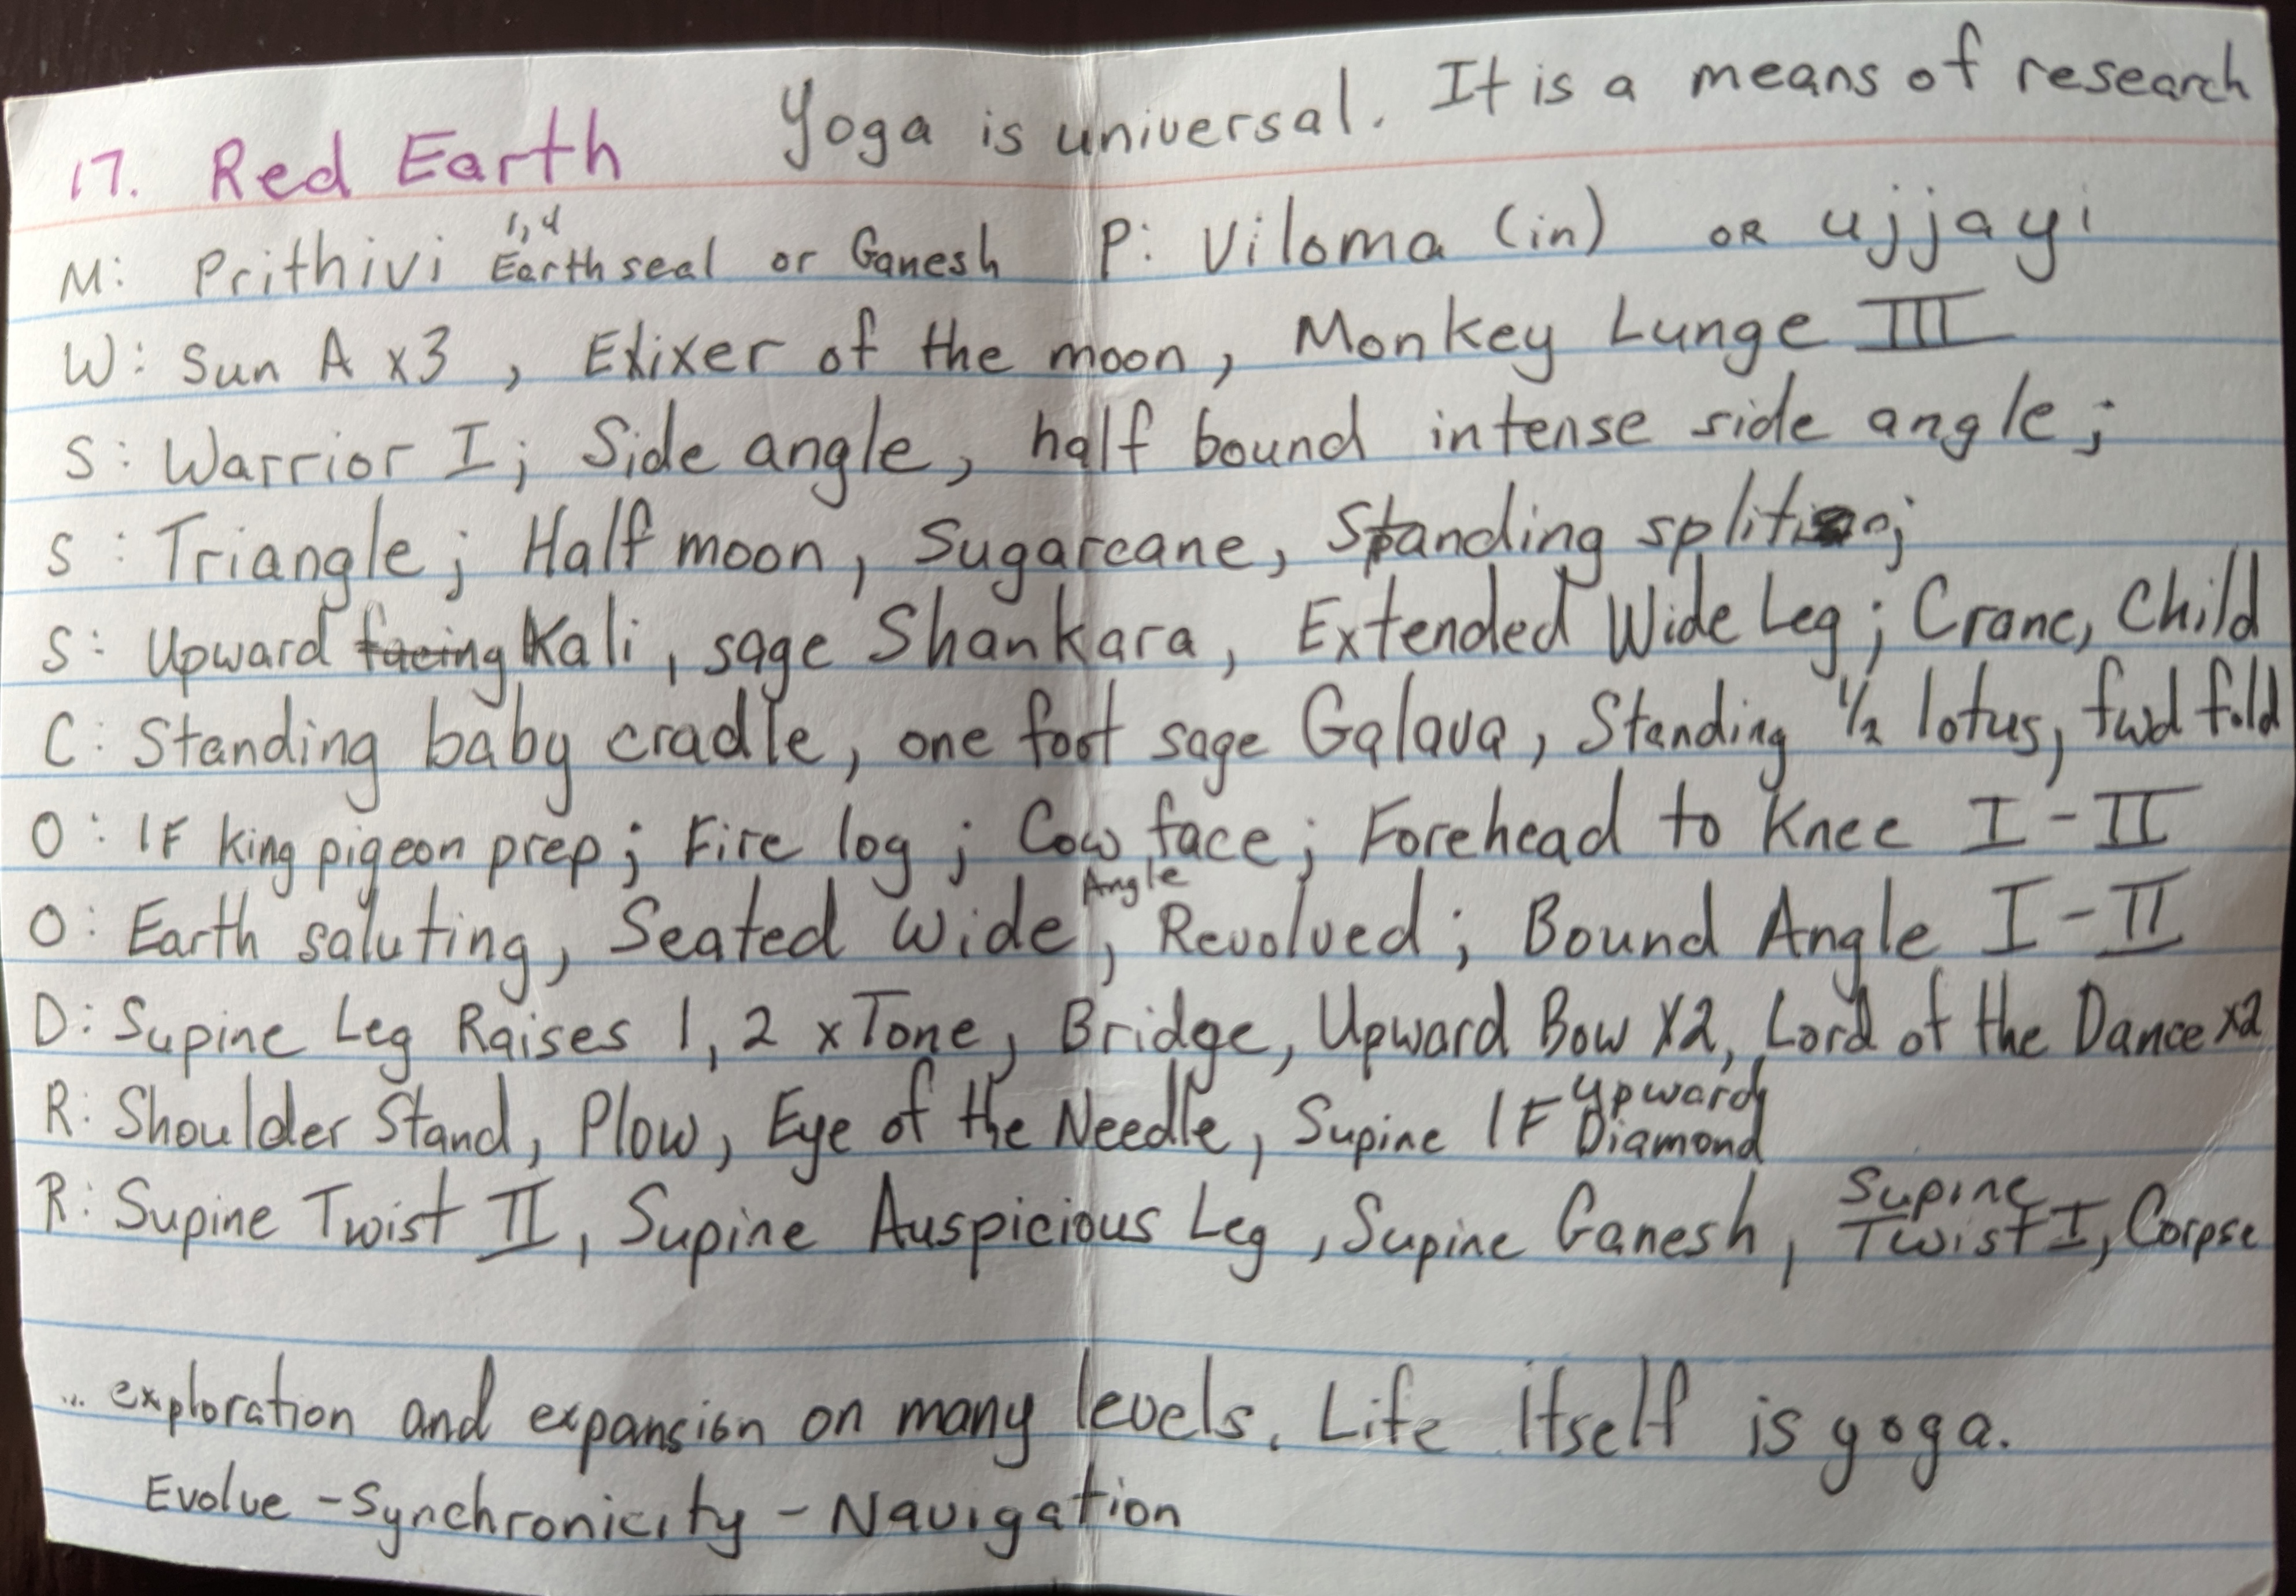 17. Red Earth Yoga is universal. It is a means of research
M: Prithivi 1,4 Earth seal or Ganesh P: Viloma (in) OR ujjayi
W: Sun A x3, Elixer of the moon, Monkey Lunge III
S: Warrior I; Side angle, half bound intense side angle;
S: Triangle; Half moon, Sugarcane, Standing split;
S: Upward facing Kali, sage Shankara, Extended Wide Leg; Crane, Child
C: Standing baby cradle, one foot sage Galava, Standing 1/2 lotus, fwd fold
O: 1F king pigeon prep; Fire log; Cow face; Forehead to Knee I-II
O: Earth saluting, Seated Wide Angle, Revolved; Bound Angle I-II
D: Supine Leg Raises 1,2 x Tone, Bridge, Upward Bow X2, Lord of the Dance x2
R: Shoulder Stand, Plow, Eye of the Needle, Supine 1F Upward Diamond
R: Supine Twist II, Supine Auspicious Leg, Supine Ganesh, Supine Twist I, Corpse
... exploration and expansion on many levels. Life itself is yoga.
Evolve - Synchronicity - Navigation